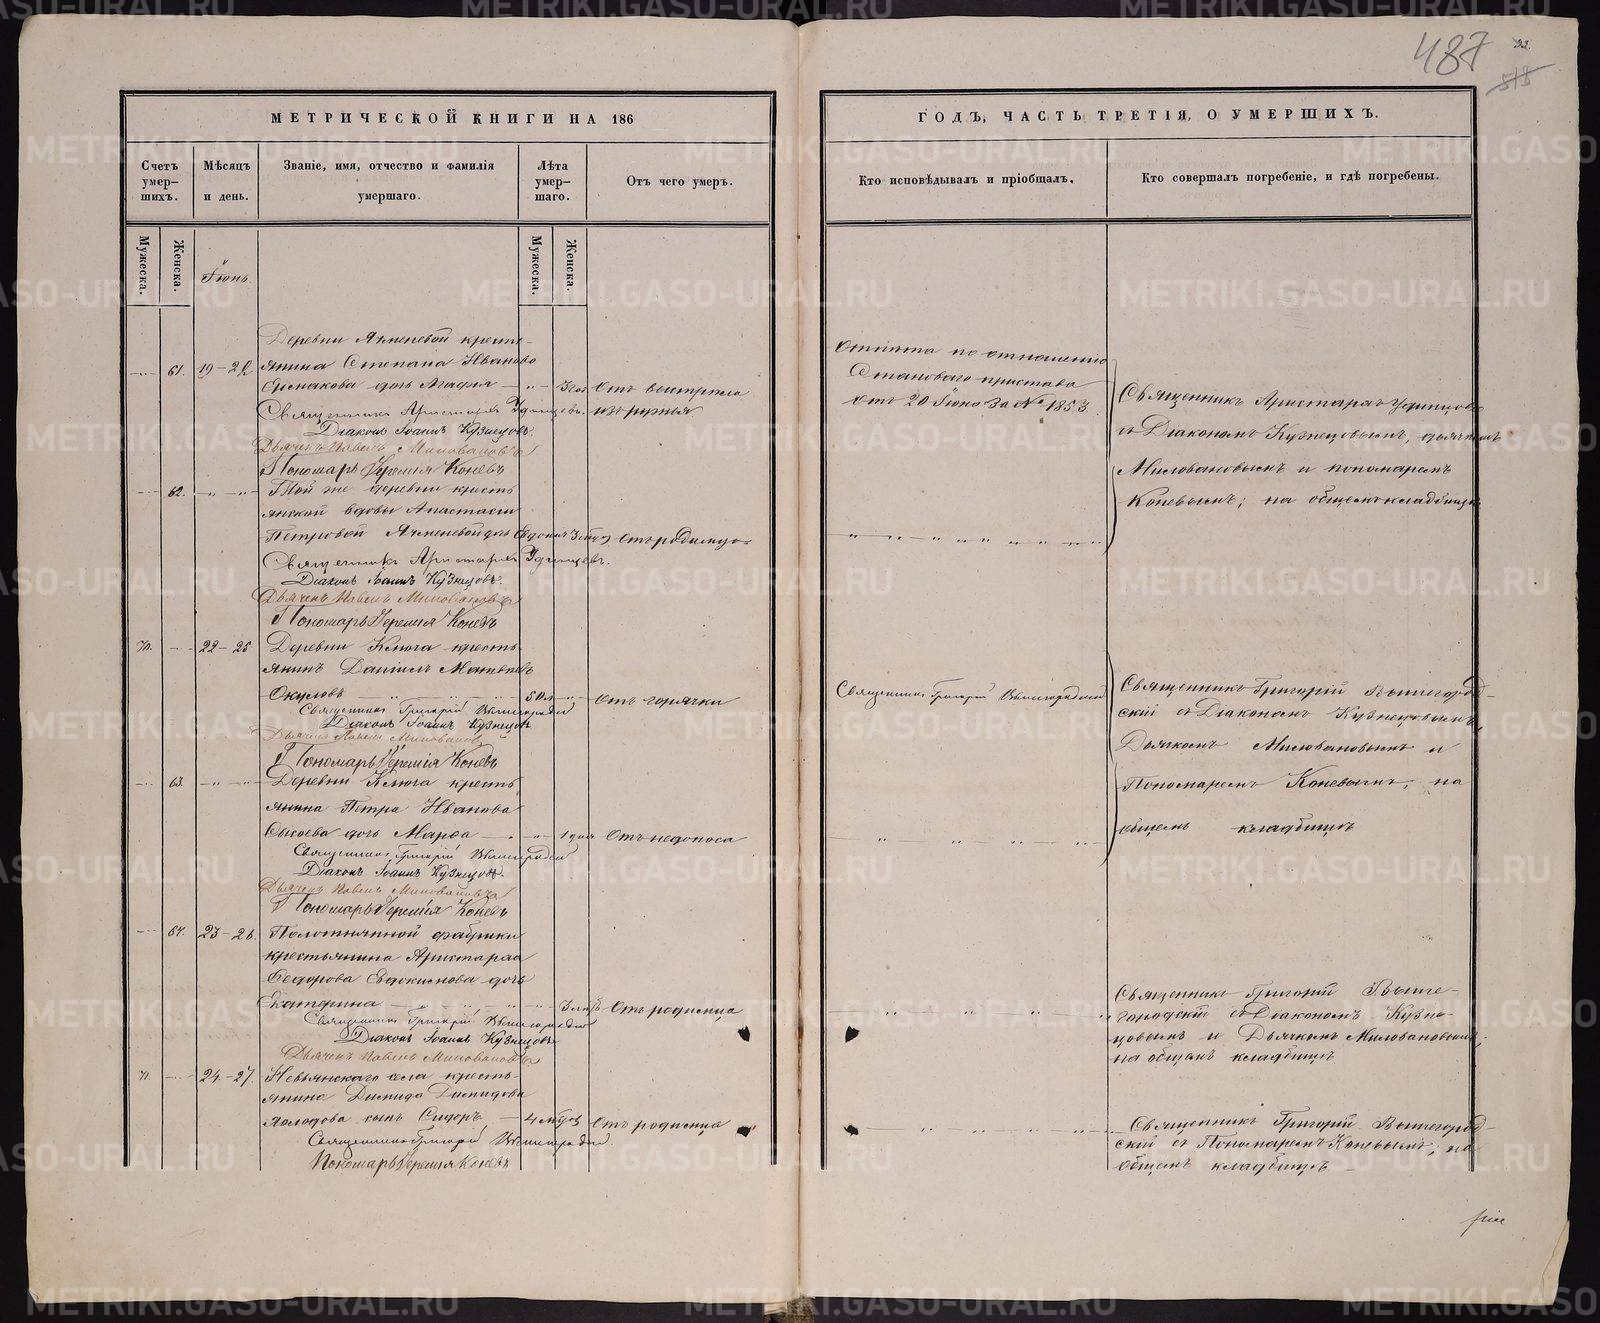 487
518
МЕТРИЧЕСКОЙ КНИГИ НА 186
Счетъ умер-шихъ.
Мѣсяцъ и день.
Званіе, имя, отчество и фамилія умершаго.
Лѣта умер-шаго.
Отъ чего умеръ.
Мужеска.
Женска.
Мужеска.
Женска.
Іюнь
Деревни Ячменевой кресть-
61. 19–22 янина Степана Иванова
дочь Агафья 3 Отъ выстрѣла
Священникъ Аристархъ Удинцевъ. изъ ружья
Діаконъ Іоаннъ Кузнецовъ.
Дьячекъ Павелъ Миловановъ
Пономарь Іеремія Коневъ
62. Той же деревни кресть
янской вдовы Анастасіи
Петровой Ячменевой дочь Евдокія Отъ родимца
Священникъ Аристархъ Удинцевъ.
Діаконъ Іоаннъ Кузнецовъ.
Дьячекъ Павелъ Миловановъ
Пономарь Іеремія Коневъ
70. 22–25 Деревни Ключа кресть
янинъ Даніилъ Матвѣевъ
Окуловъ Отъ горячки
Священникъ Григорій Вышегородскій
Діаконъ Іоаннъ Кузнецовъ
Дьячекъ Павелъ Миловановъ
Пономарь Іеремія Коневъ
63. Деревни Ключа кресть
янина Петра Иванова
Сысоева дочь Марфа 1 дня Отъ недоноса
Священникъ Григорій Вышегородскій
Діаконъ Іоаннъ Кузнецовъ.
Дьячекъ Павелъ Миловановъ
Пономарь Іеремія Коневъ
64. 23–26. Полотнянной фабрики
крестьянина Аристарха
Ѳедорова Евдокимова дочь
Екатерина Отъ родимца
Священникъ Григорій Вышегородскій
Діаконъ Іоаннъ Кузнецовъ
Дьячекъ Павелъ Миловановъ
71. 24–27. Невьянскаго села кресть-
янина Димида Димидова
Холодова сынъ Сидоръ 4 мѣсяц Отъ родимца
Священникъ Григорій Вышегородскій
Пономарь Іеремія Коневъ
ГОДЪ, ЧАСТЬ ТРЕТІЯ, О УМЕРШИХЪ.
Кто исповѣдывалъ и пріобщалъ.
Кто совершалъ погребеніе, и гдѣ погребены.
Отпѣта по отношенію
Становаго пристава
отъ 20 Іюня за № 1853
Священникъ Аристархъ Удинцевъ
съ Діакономъ Кузнецовымъ, дьячкомъ
Миловановымъ и пономаремъ
Коневымъ; на общемъ кладбищѣ
Священникъ Григорій Вышегородскій
Священникъ Григорій Вышегород-
скій съ Діакономъ Кузнецовымъ,
Дьячкомъ Миловановымъ и
Пономаремъ Коневымъ; на
общемъ кладбищѣ
Священникъ Григорій Выше-
городскій съ Діакономъ Кузне-
цовымъ и Дьячкомъ Миловановымъ;
на общемъ кладбищѣ
Священникъ Григорій Вышегород-
скій съ Пономаремъ Коневымъ; на
общемъ кладбищѣ
METRIKI.GASO-URAL.RU